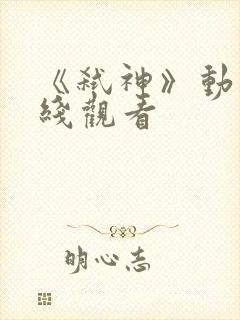 《弒神》動
綫觀看
明心志